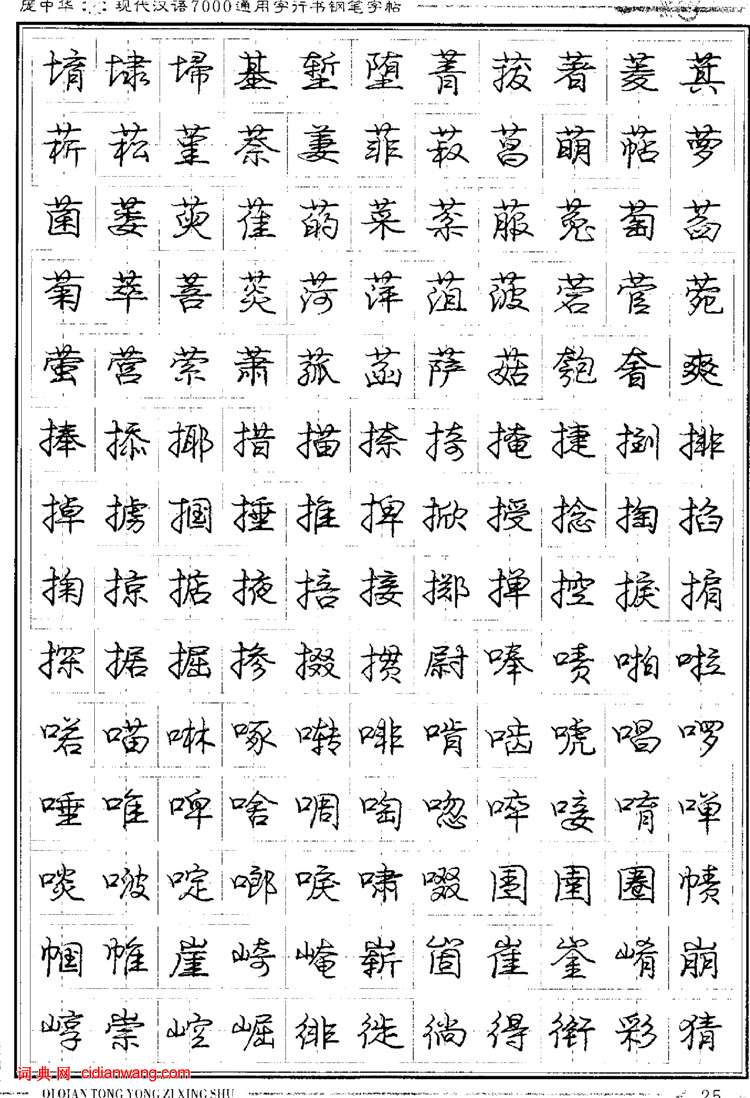 庞中华:现代汉语7000通用字行书钢笔字帖
堉埭埽基堑堕菁菝著菱萁
菥菘堇萘萋菲菽菖萌萜萝
菌萎萸萑菂菜棻菔菟萄萏
菊萃菩菼菏萍菹菠菪菅菀
萤营萦萧菰菡萨菇匏奢爽
捧掭揶措描捺掎掩捷捯排
掉掳掴捶推捭掀授捻掏掐
掬掠掂掖掊接掷掸控捩掮
探据掘掺掇掼尉唪啧啪啦
喏喵啉啄啭啡啃啮唬唱啰
唾唯啤啥啁啕唿啐唼唷啴
啖啵啶啷唳啸啜圉圊圈帻
帼帷崖崎崦崭崮崔崟崤崩
崞崇崆崛徘徙徜得衔彩猜
词典网 cidianwang.com
QIQIAN TONG YONG ZI XING SHU
25